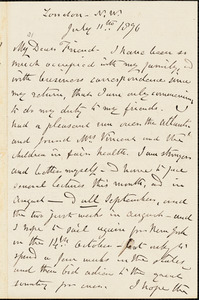 London - N.W.
July 11th 1896
My Dear Friend - I have been so
much occupied with my family, and
with business correspondence since
my return, that I am only commencing
to do my duty to my friends. I
had a pleasant run over the Atlantic
and found Mrs Vincent and the
children in fair health. I am stronger
and better myself - and have to give
several lectures this month, and in
August - and all September, and
the two first weeks in
and I hope to sail again for New York
on the 14th October - first only to
spend a few weeks in the States
and then bid adieu to the great
country for ever. I hope the